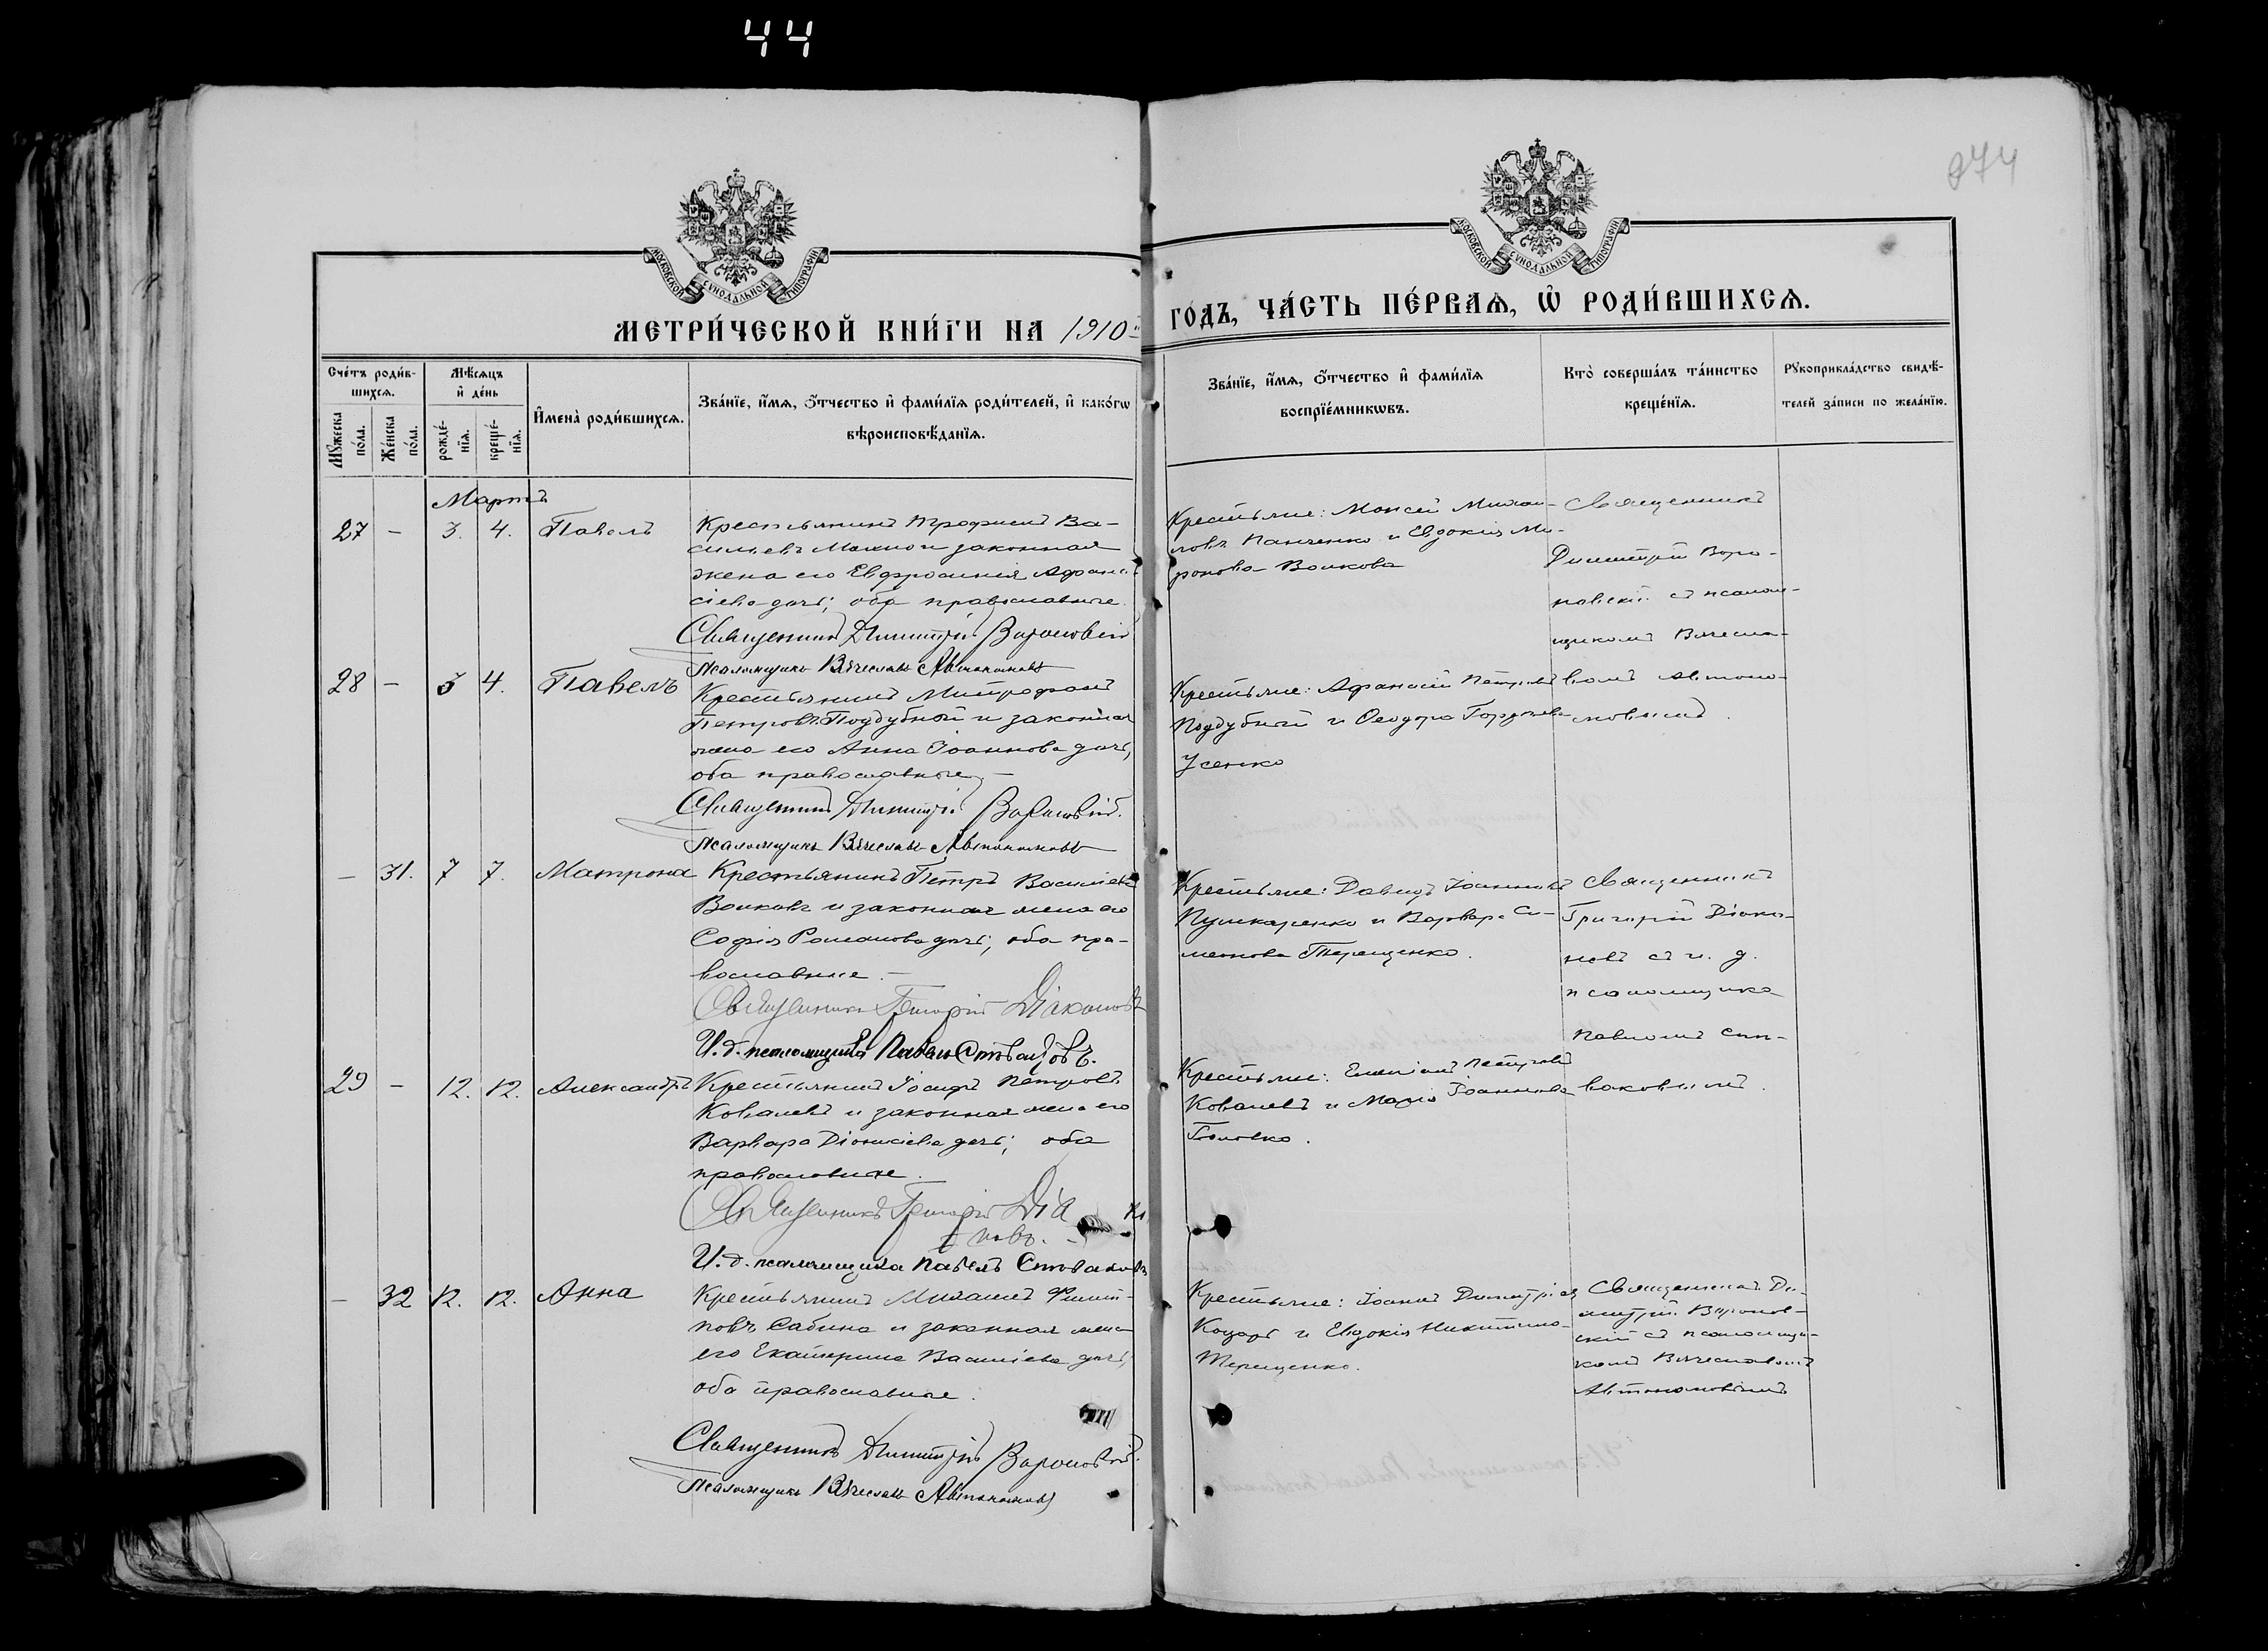 44
274
МОСКОВСКОЙ СѴНОДАЛЬНОЙ ТИПОГРАФІИ
МОСКОВСКОЙ СѴНОДАЛЬНОЙ ТИПОГРАФІИ
МЕТРИ́ЧЕСКОЙ КНИ́ГИ НА 1910
ГО́ДЪ, ЧА́СТЬ ПЕ́РВАѦ, Ѡ҆ РОДИ́ВШИХСѦ.
Сче́тъ роди́в-
шихсѧ.
Мꙋ́жеска
по́ла.
Же́нска
по́ла.
Мѣ́сѧцъ
и҆ де́нь
рожде́-
нїѧ.
креще́-
нїѧ.
И҆мена̀ роди́вшихсѧ.
Зва́нїе, и҆́мѧ, ѻ҆́тчество и҆ фами́лїѧ роди́телей, и҆ како́гѡ
вѣроисповѣ́данїѧ.
Зва́нїе, и҆́мѧ, ѻ҆́тчество и҆ фами́лїѧ
воспрїе́мникѡвъ.
Кто̀ соверша́лъ та́инство
креще́нїѧ.
Рꙋкоприкла́дство свидѣ́-
телей за́писи по жела́нїю.
Мартъ
27 - 3. 4. Павелъ
Крестьянинъ Трофимъ Ва-
сильевъ и законная
жена его Евфросинія Афана-
сіева дочь; оба православные.
Священникъ Димитрій Вороновскій
Псаломщикъ Вячеславъ Автономовъ
Крестьяне: Моисей Михаи-
ловъ Панченко и Евдокія Ми-
ронова Волкова
Священникъ
Димитрій Воро-
новскій съ псалом-
щикомъ Вячесла-
вомъ Автоно-
мовымъ.
28 - 3 4. Павелъ
Крестьянинъ Митрофанъ
Петровъ Поддубной и законная
жена его Анна Іоаннова дочь,
оба православные
Священникъ Димитрій Вороновскій.
Псаломщикъ Вячеславъ Автономовъ
Крестьяне: Афанасій Петровъ
Поддубной и Ѳеодора
Усенко
- 31. 7 7. Матрона
Крестьянинъ Петръ Васильевъ
Волковъ и законная жена его
Софія Романова дочь; оба пра-
вославные.
Священникъ Григорій Діаконовъ
И. д. псаломщика Павелъ
Крестьяне: Давидъ Іоанновъ
Пушкаренко и Варвара Си-
меонова Терещенко.
Священникъ
Григорій Діако-
новъ съ и. д.
псаломщика
Павломъ
29 - 12. 12. Александръ
Крестьянинъ Іосифъ Петровъ
Ковалевъ и законная жена его
Варвара Діонисіева дочь; оба
православные.
Священникъ Григорій Діако
новъ.
И. д. псаломщика Павелъ
Крестьяне: Петровъ
Ковалевъ и Марія Іоаннова
Головко.
- 32 12. 12. Анна
Крестьянинъ Михаилъ Филип-
повъ Сабина и законная жена
его Екатерина Васильева дочь;
оба православные.
Священникъ Димитрій Вороновскій.
Псаломщикъ Вячеславъ Автономовъ
Крестьяне: Іоаннъ Димитріевъ
Коцарь и Евдокія Никитина
Терещенко.
Священникъ Ди-
митрій Воронов-
скій съ псаломщи-
комъ Вячеславомъ
Автономовымъ